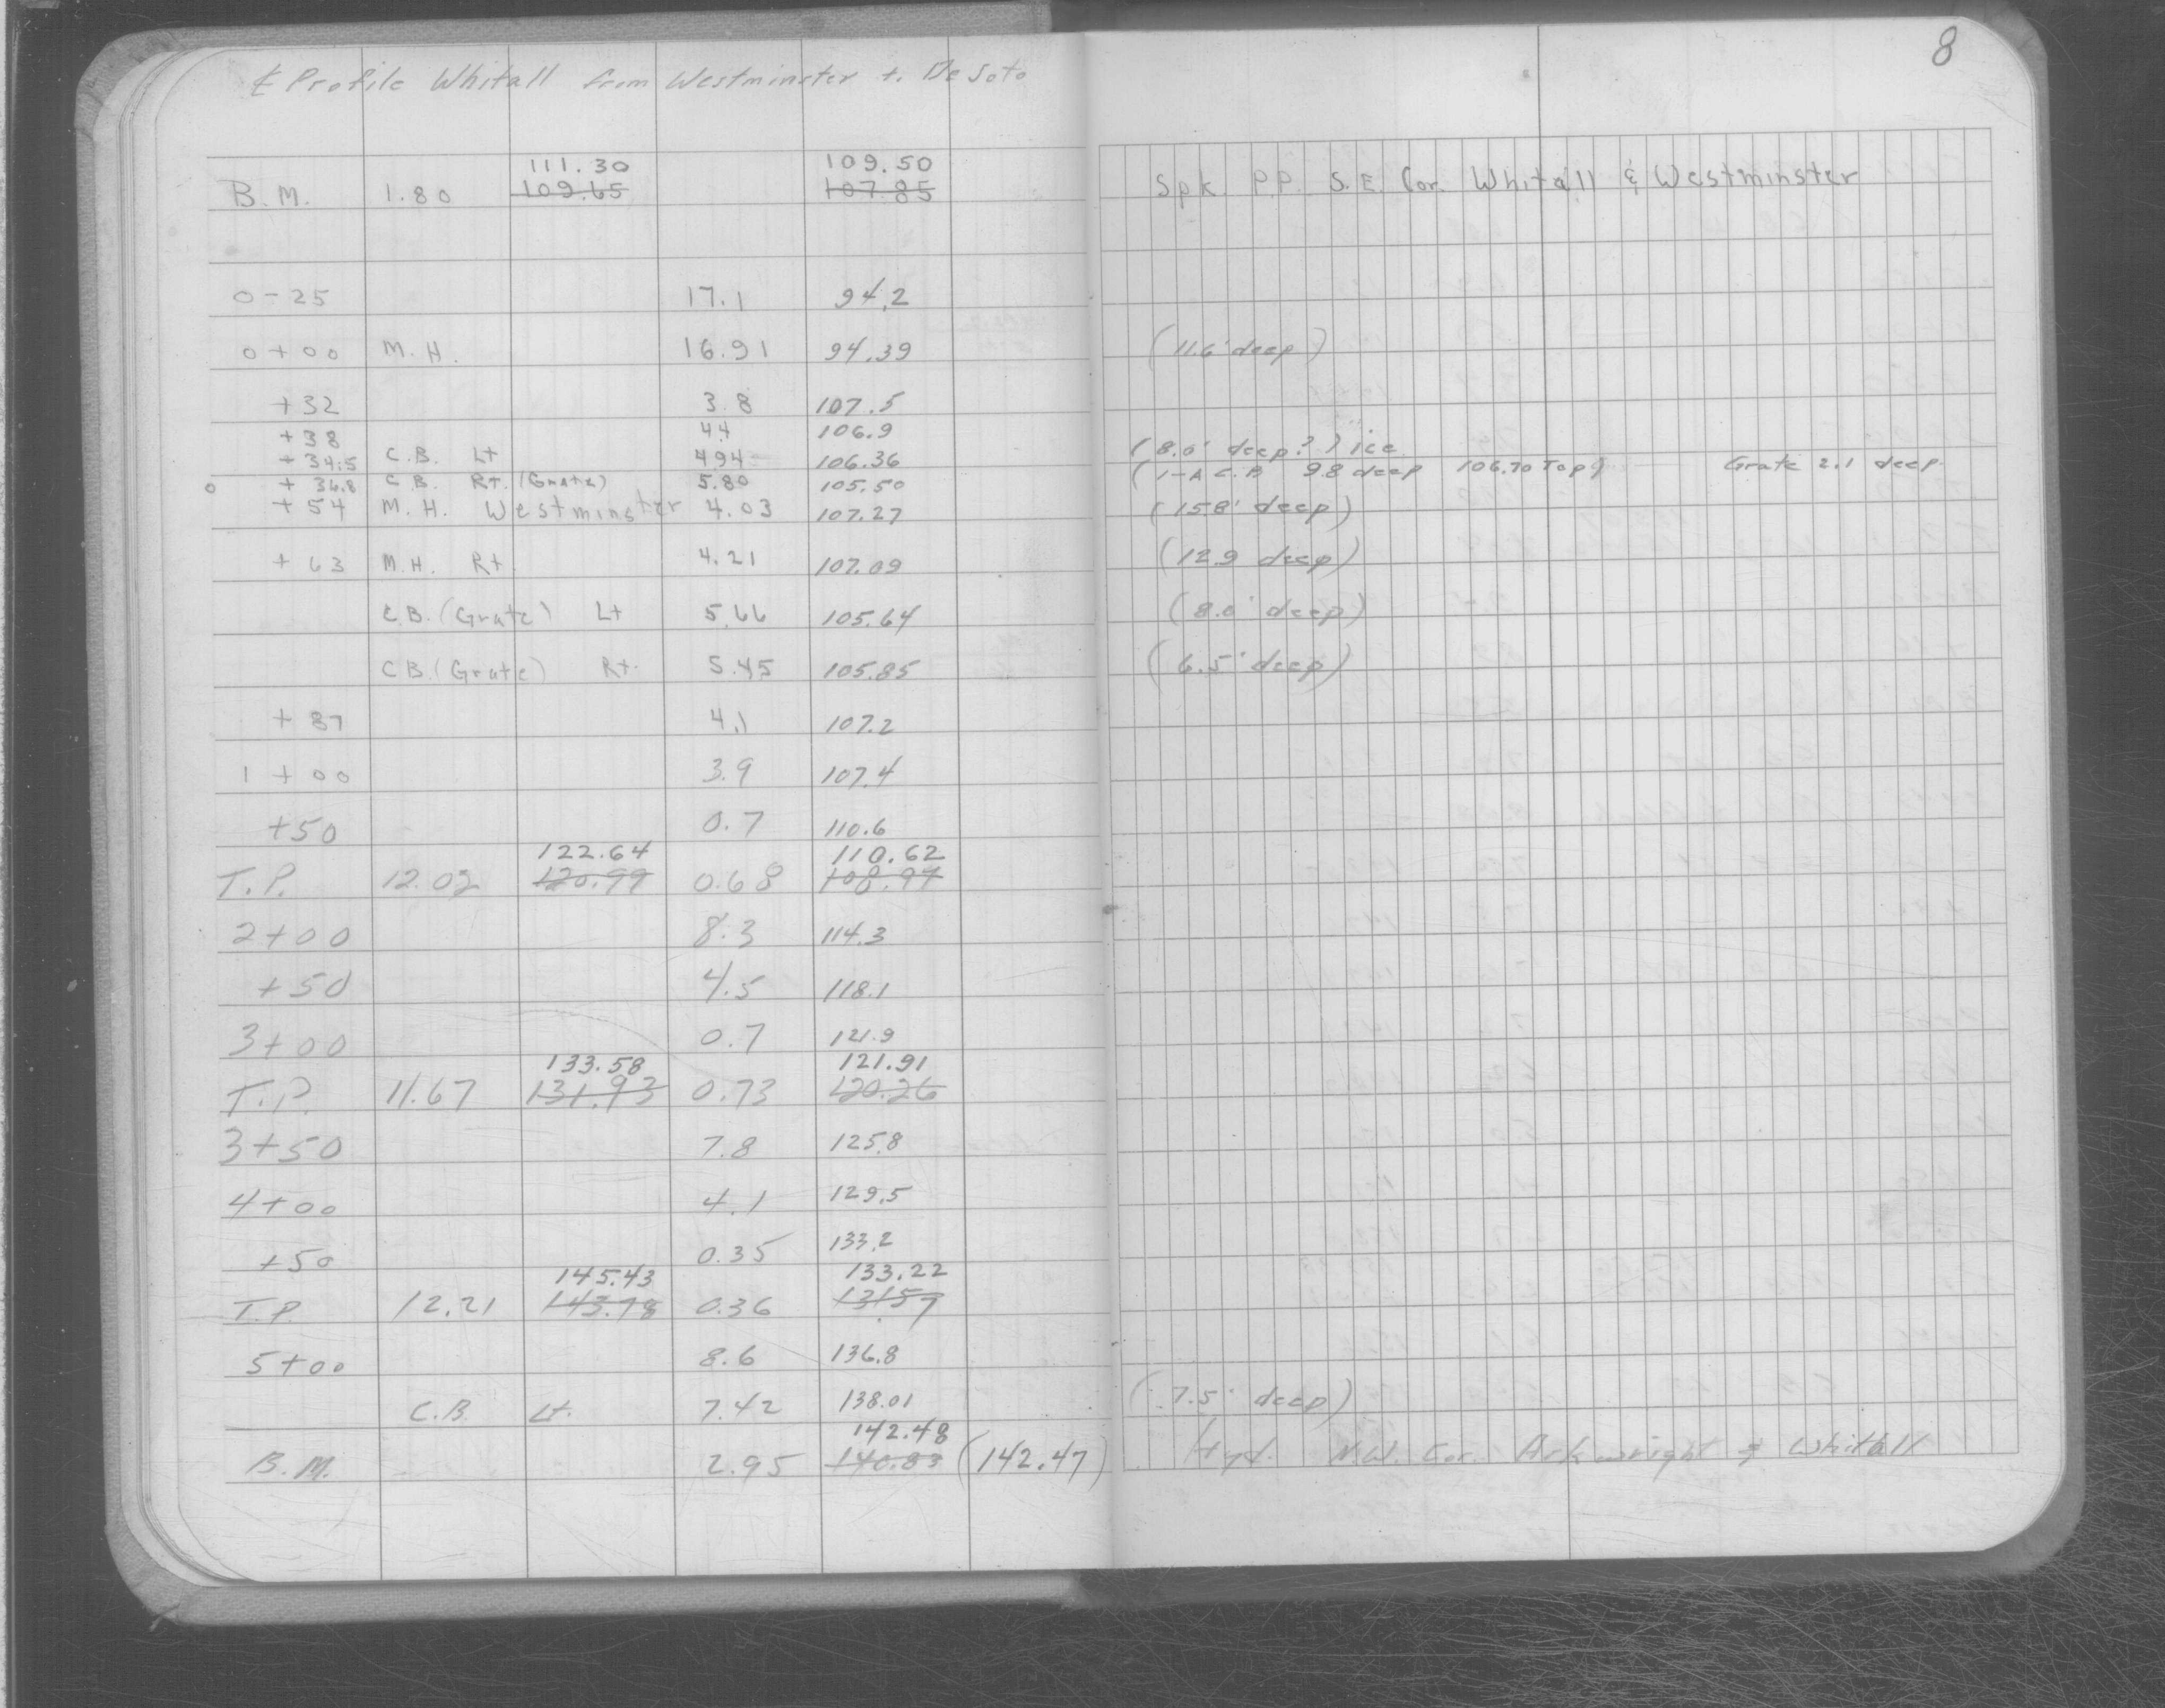 8
℄ Profile Whitall from Westminster to De Soto
111.30 109.50
B.M. 1.80 109.65 107.85 Spk. P.P. S.E. Cor. Whitall & Westminster
0-25 17.1 94.2
0+00 M.H. 16.91 94.39 (11.6' deep)
+32 3.8 107.5
+38 4.4 106.9
+34.5 C.B. Lt 4.94 106.36 (8.0' deep?) ice
+36.8 C.B. Rt. (Grate) 5.80 105.50 (1-A C.B 9.8 deep 106.70 Top) Grate 2.1 deep
+54 M.H. Westminster 4.03 107.27 (15.8' deep)
+63 M.H. Rt. 4.21 107.09 (12.9 deep)
C.B. (Grate) Lt 5.66 105.64 (8.0' deep)
C.B. (Grate) Rt. 5.45 105.85 (6.5' deep)
+87 4.1 107.2
1+00 3.9 107.4
+50 0.7 110.6
122.64 110.62
T.P. 12.02 120.99 0.68 108.97
2+00 8.3 114.3
+50 4.5 118.1
3+00 0.7 121.9
133.58 121.91
T.P. 11.67 131.93 0.73 120.26
3+50 7.8 125.8
4+00 4.1 129.5
+50 0.35 133.2
145.43 133.22
T.P. 12.21 143.78 0.36 131.57
5+00 8.6 136.8
C.B. Lt. 7.42 138.01 (7.5' deep)
142.48
B.M. 2.95 140.83 (142.47) Hyd. N.W. Cor. Arkwright & Whitall